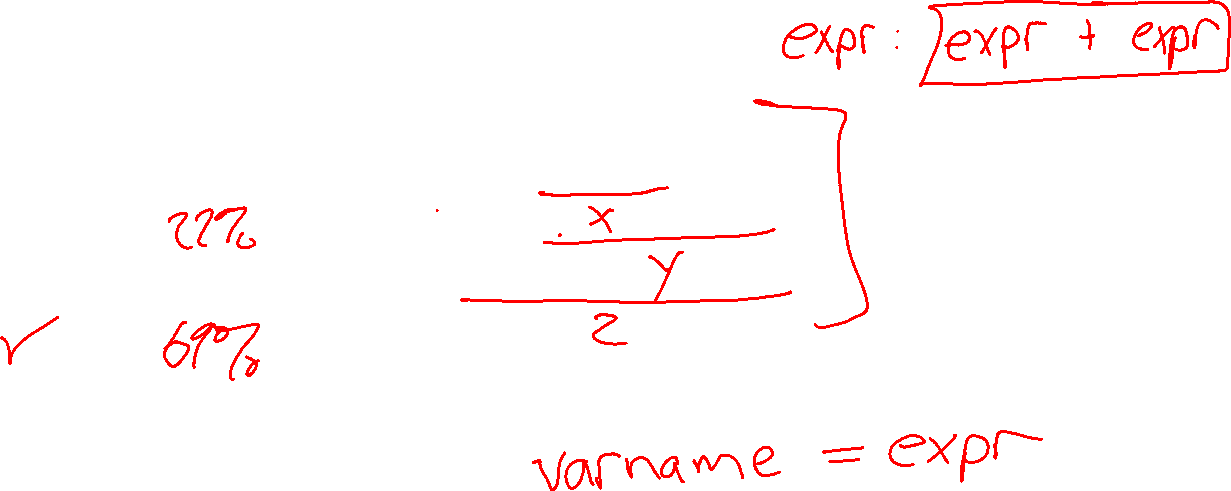 expr: expr + expr
22%
x
y
z
69%
varname = expr